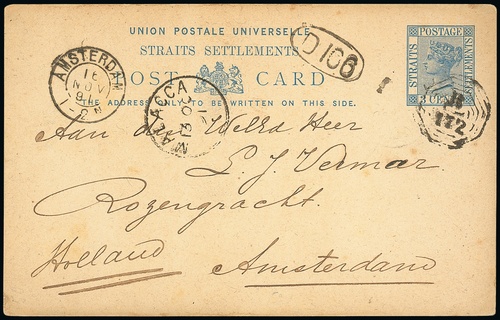 UNION POSTALE UNIVERSELLE
STRAITS SETTLEMENTS
POST CARD
THE ADDRESS ONLY TO BE WRITTEN ON THIS SIDE.
STRAITS
POSTAGE
SETTLEMENTS
3 CENTS
D 106
AMSTERDAM
16
NOV
MALACCA
OC
13
B
172
Aan den Weled Heer
L. J. Vermar.
Rozengracht.
Holland Amsterdam